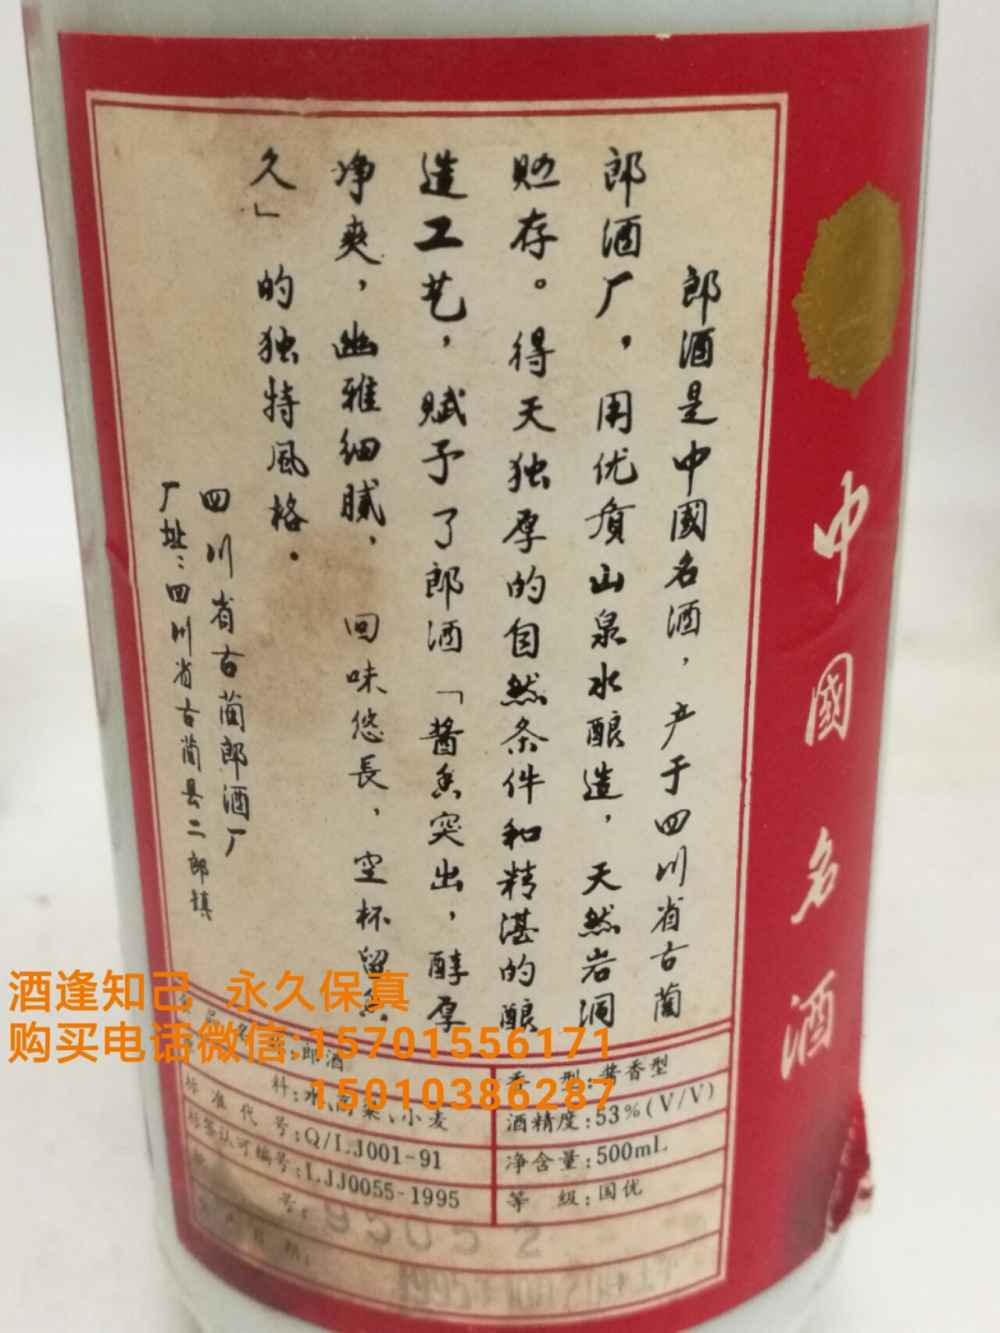 中國名酒
郎酒是中國名酒，产于四川省古蔺
郎酒厂，用优质山泉水酿造，天然岩洞
贮存。得天独厚的自然条件和精湛的酿
造工艺，赋予了郎酒「酱香突出，醇厚
净爽，幽雅细腻，回味悠長，空杯留香
久」的独特風格．
四川省古蔺郎酒厂
厂址：四川省古蔺县二郎镇
酒逢知己 永久保真
购买电话微信:15701556171
15010386287
郎酒
香 型：酱香型
料：水、高粱、小麦
酒精度：53%(V/V)
标准代号：Q/LJ001-91
净含量：500mL
标签认可编号：LJJ0055-1995
等 級：国优
号：
95052